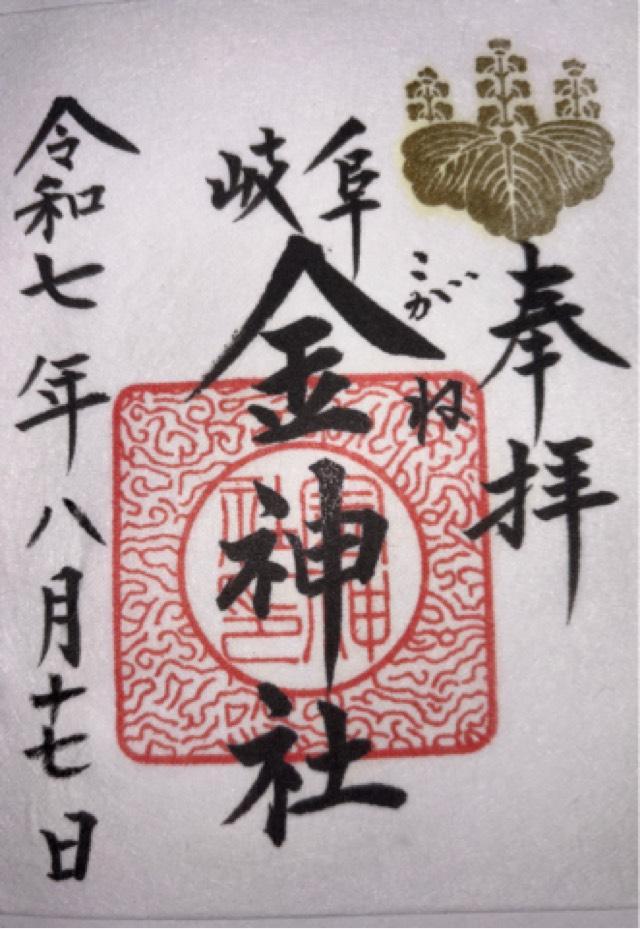 奉拝
岐阜
金神社
こがね
令和七年八月十七日